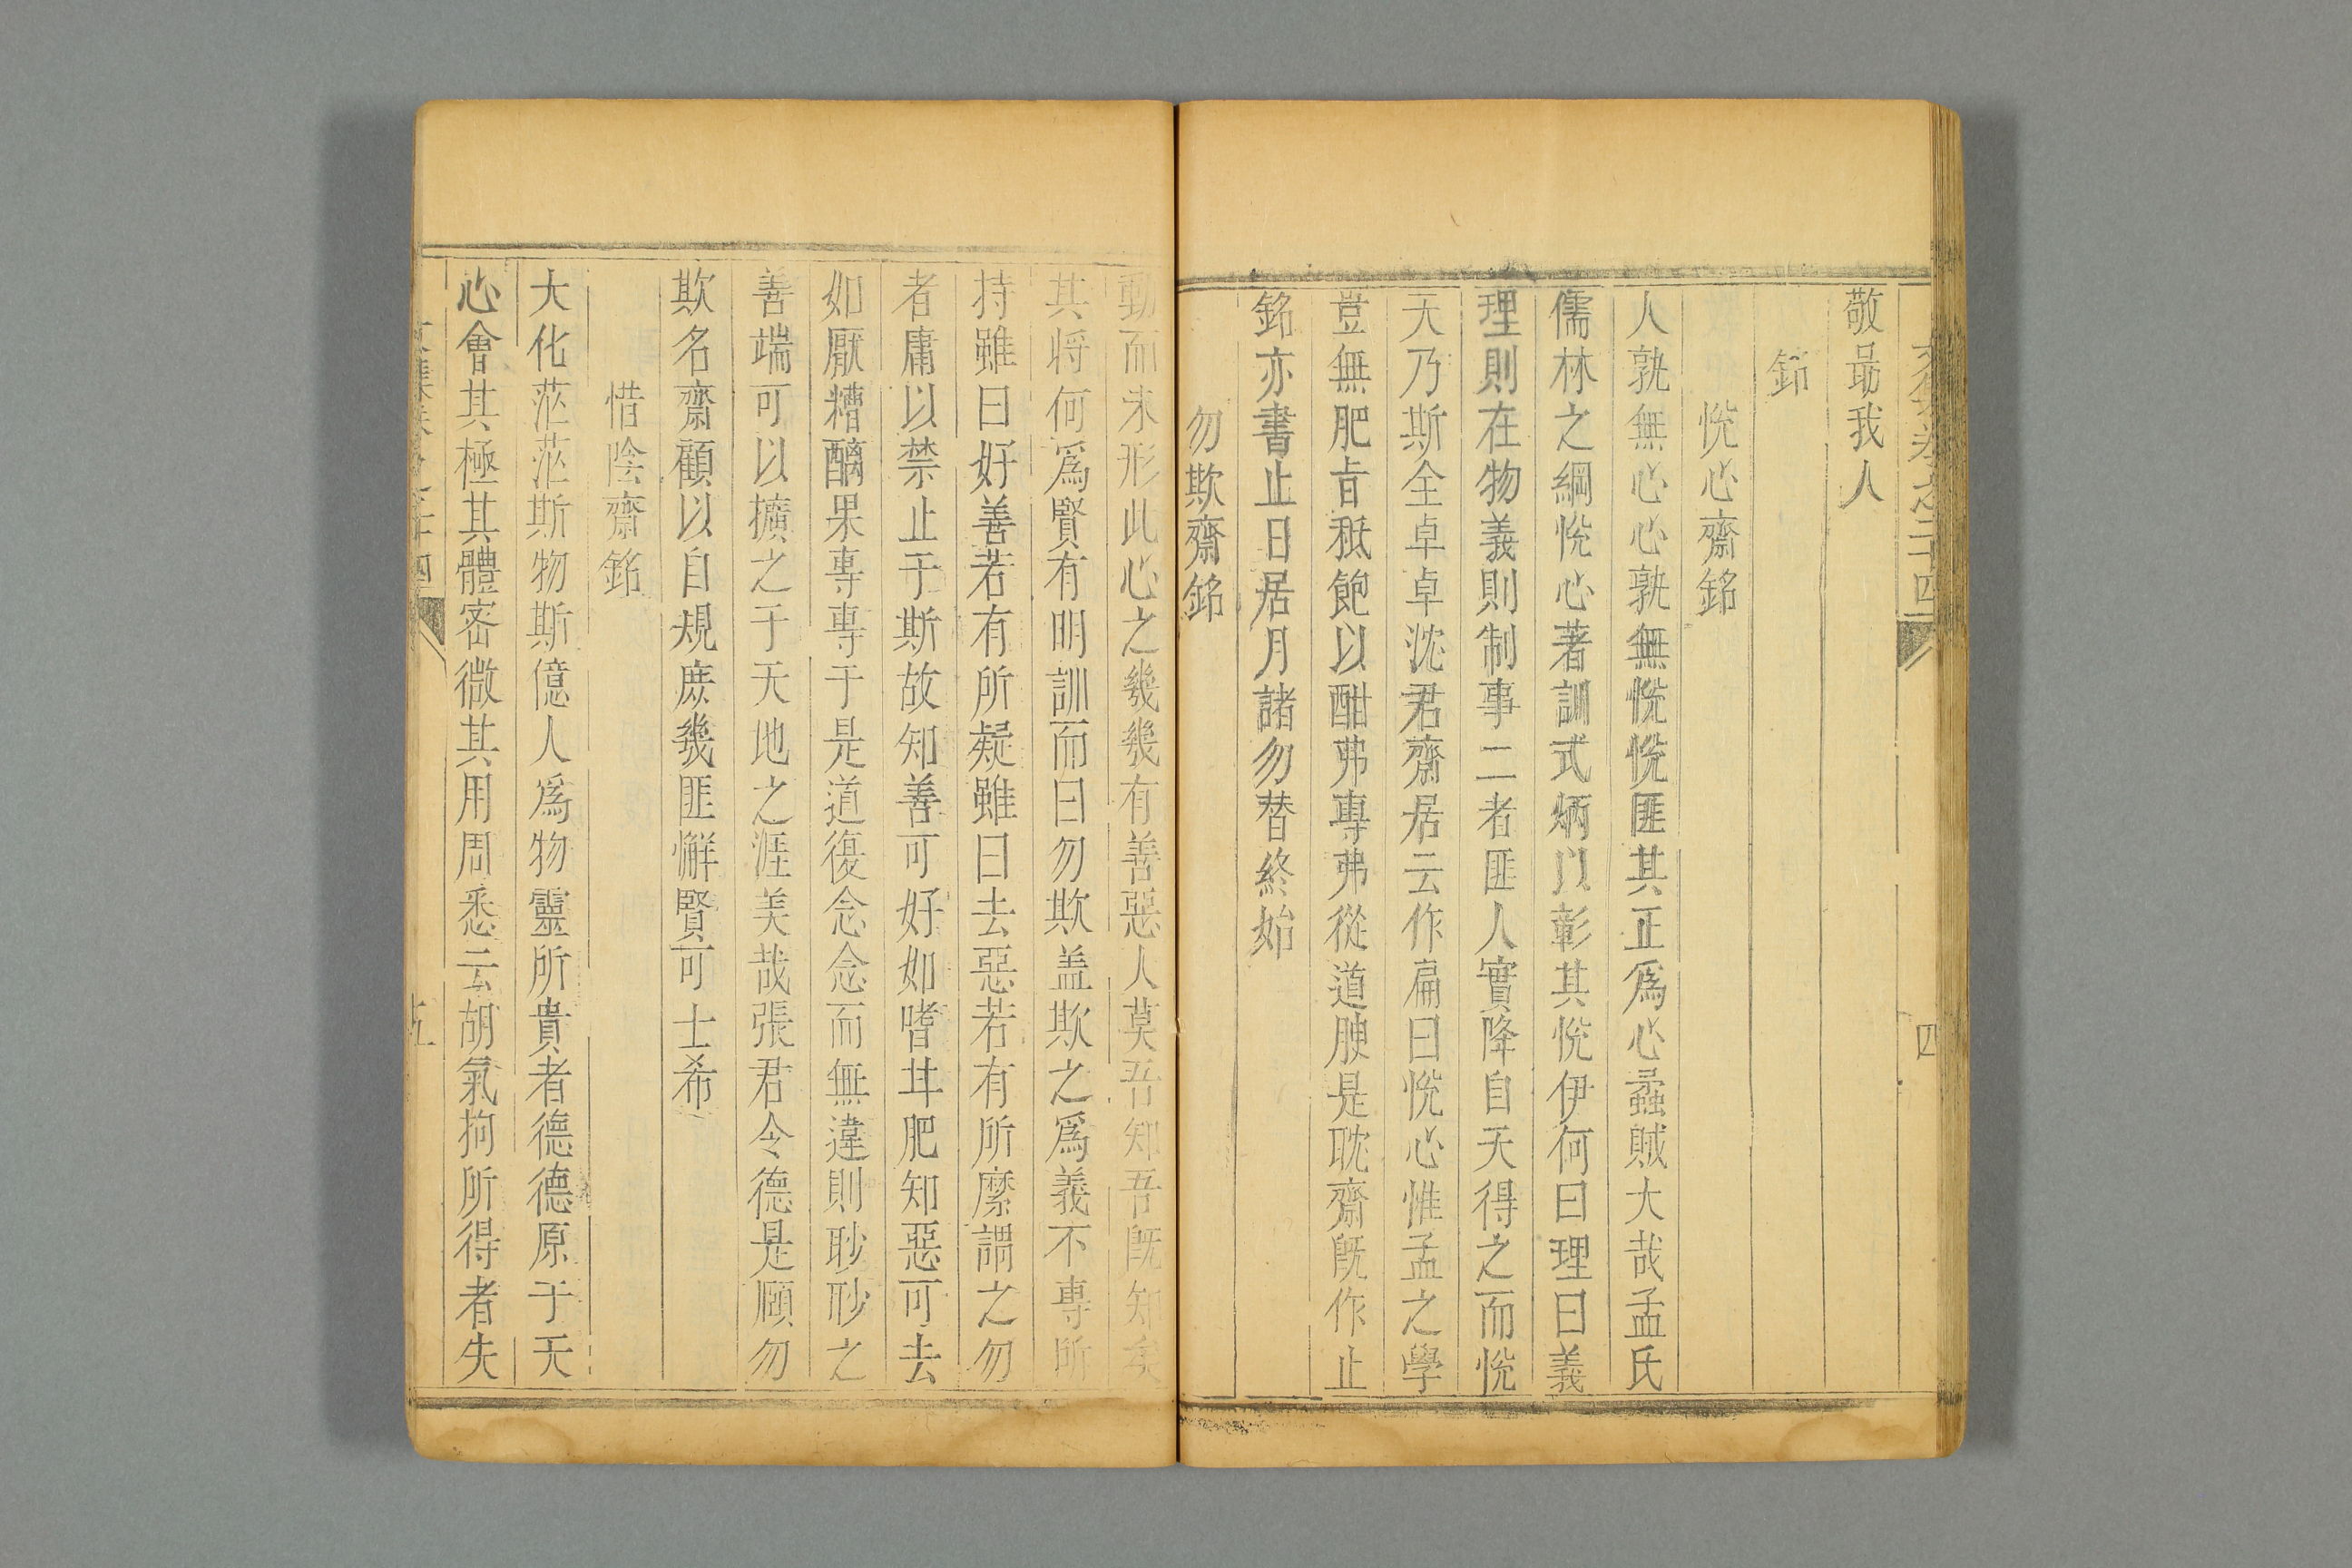 敬最我人
銘
恱心齋銘
人孰無心心孰無恱恱匪其正爲心蟊賊大哉孟氏
儒林之綱恱心著訓式炳以彰其恱伊何曰理曰義
理則在物義則制事二者匪人實降自天得之而恱
天乃斯全卓卓沈君齋居云作扁曰恱心惟孟之學
豈無肥旨秪飽以酣弗專弗從道腴是耽齋旣作止
銘亦書止日居月諸勿替終始
勿欺齋銘
動而未形此心之幾幾有善惡人莫吾知吾旣知矣
其將何爲賢有明訓而曰勿欺盖欺之爲義不專所
持雖曰好善若有所疑雖曰去惡若有所縻謂之勿
者庸以禁止于斯故知善可好如嗜其肥知惡可去
如厭糟醨果專專于是道復念念而無違則眇眇之
善端可以擴之于天地之涯美哉張君令德是頋勿
欺名齋顧以自規庶幾匪懈賢可士希
惜陰齋銘
大化茫茫斯物斯億人爲物靈所貴者德德原于天
心會其極其體密微其用周悉云胡氣拘所得者失
文集卷之二十四
四
五